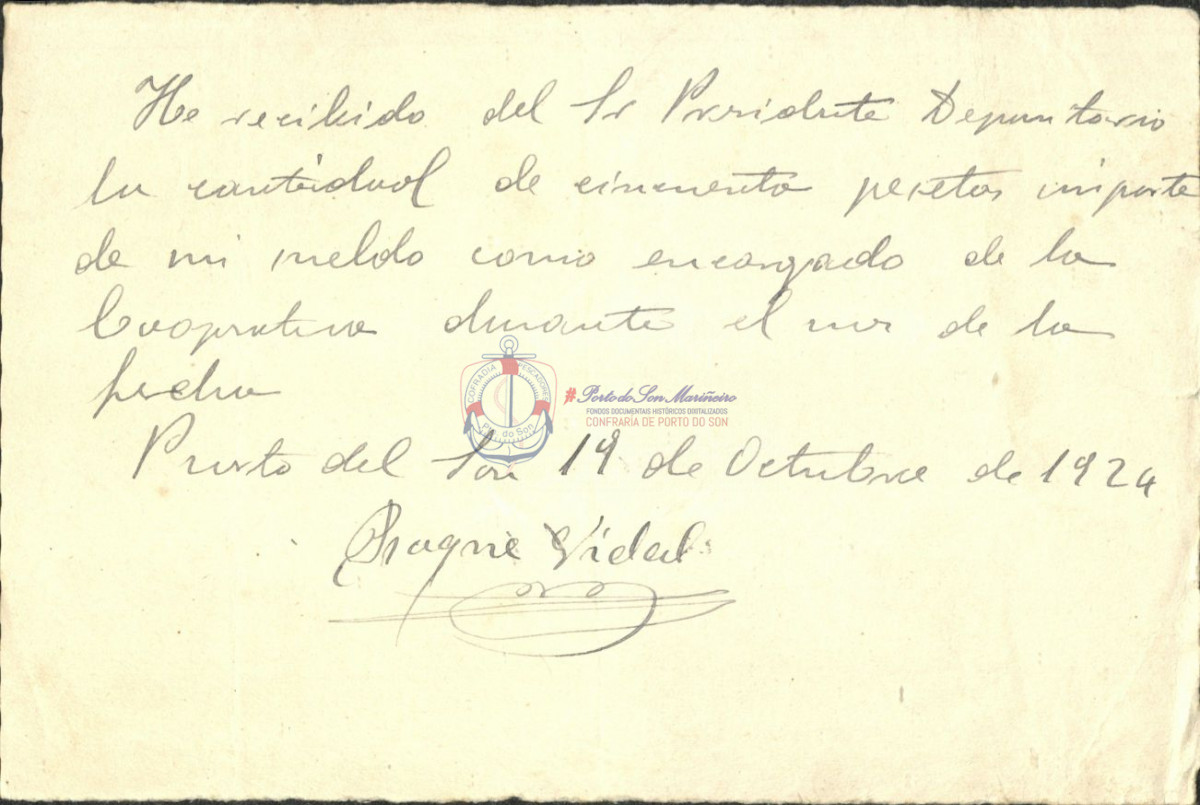 He recibido del Sr Presidente Depositario
la cantidad de cincuenta pesetas importe
de mi sueldo como encargado de la
Cooprativa durante el mes de la
fecha
COFRADIA PESCADORES
Pto do Son
#Porto do Son Mariñeiro
FONDOS DOCUMENTAIS HISTÓRICOS DIXITALIZADOS
CONFRARÍA DE PORTO DO SON
Puerto del Son 19 de Octubre de 1924
Roque Vidal